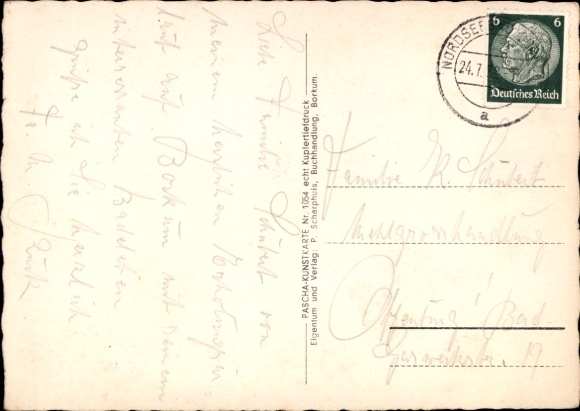 Liebe Familie Schubert von
meinem herzlichen Erholungsur=
laub auf Borkum mit seinem
interessanten Badeleben
grüße ich Sie herzlich
Fr. M.
PASCHA-KUNSTKARTE Nr. 1054 echt Kupfertiefdruck
Eigentum und Verlag: P. Scharphuis, Buchhandlung, Borkum.
NORDSEE
24.7.
a
6 6
Deutsches Reich
Familie K. Schubert
Mehlgrosshandlung
Offenburg / Bad.
Gaswerkstr. 19